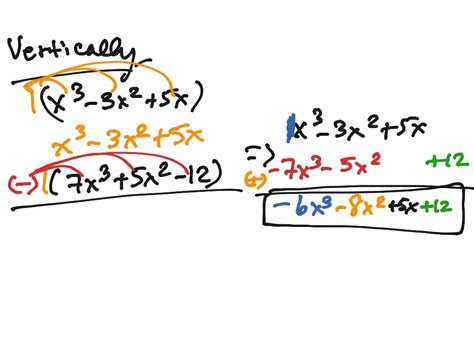 Vertically
1(x³-3x²+5x)
x³-3x²+5x
(-) 1(7x³+5x²-12)
1x³-3x²+5x
=> (+) -7x³-5x² +12
-6x³-8x²+5x+12